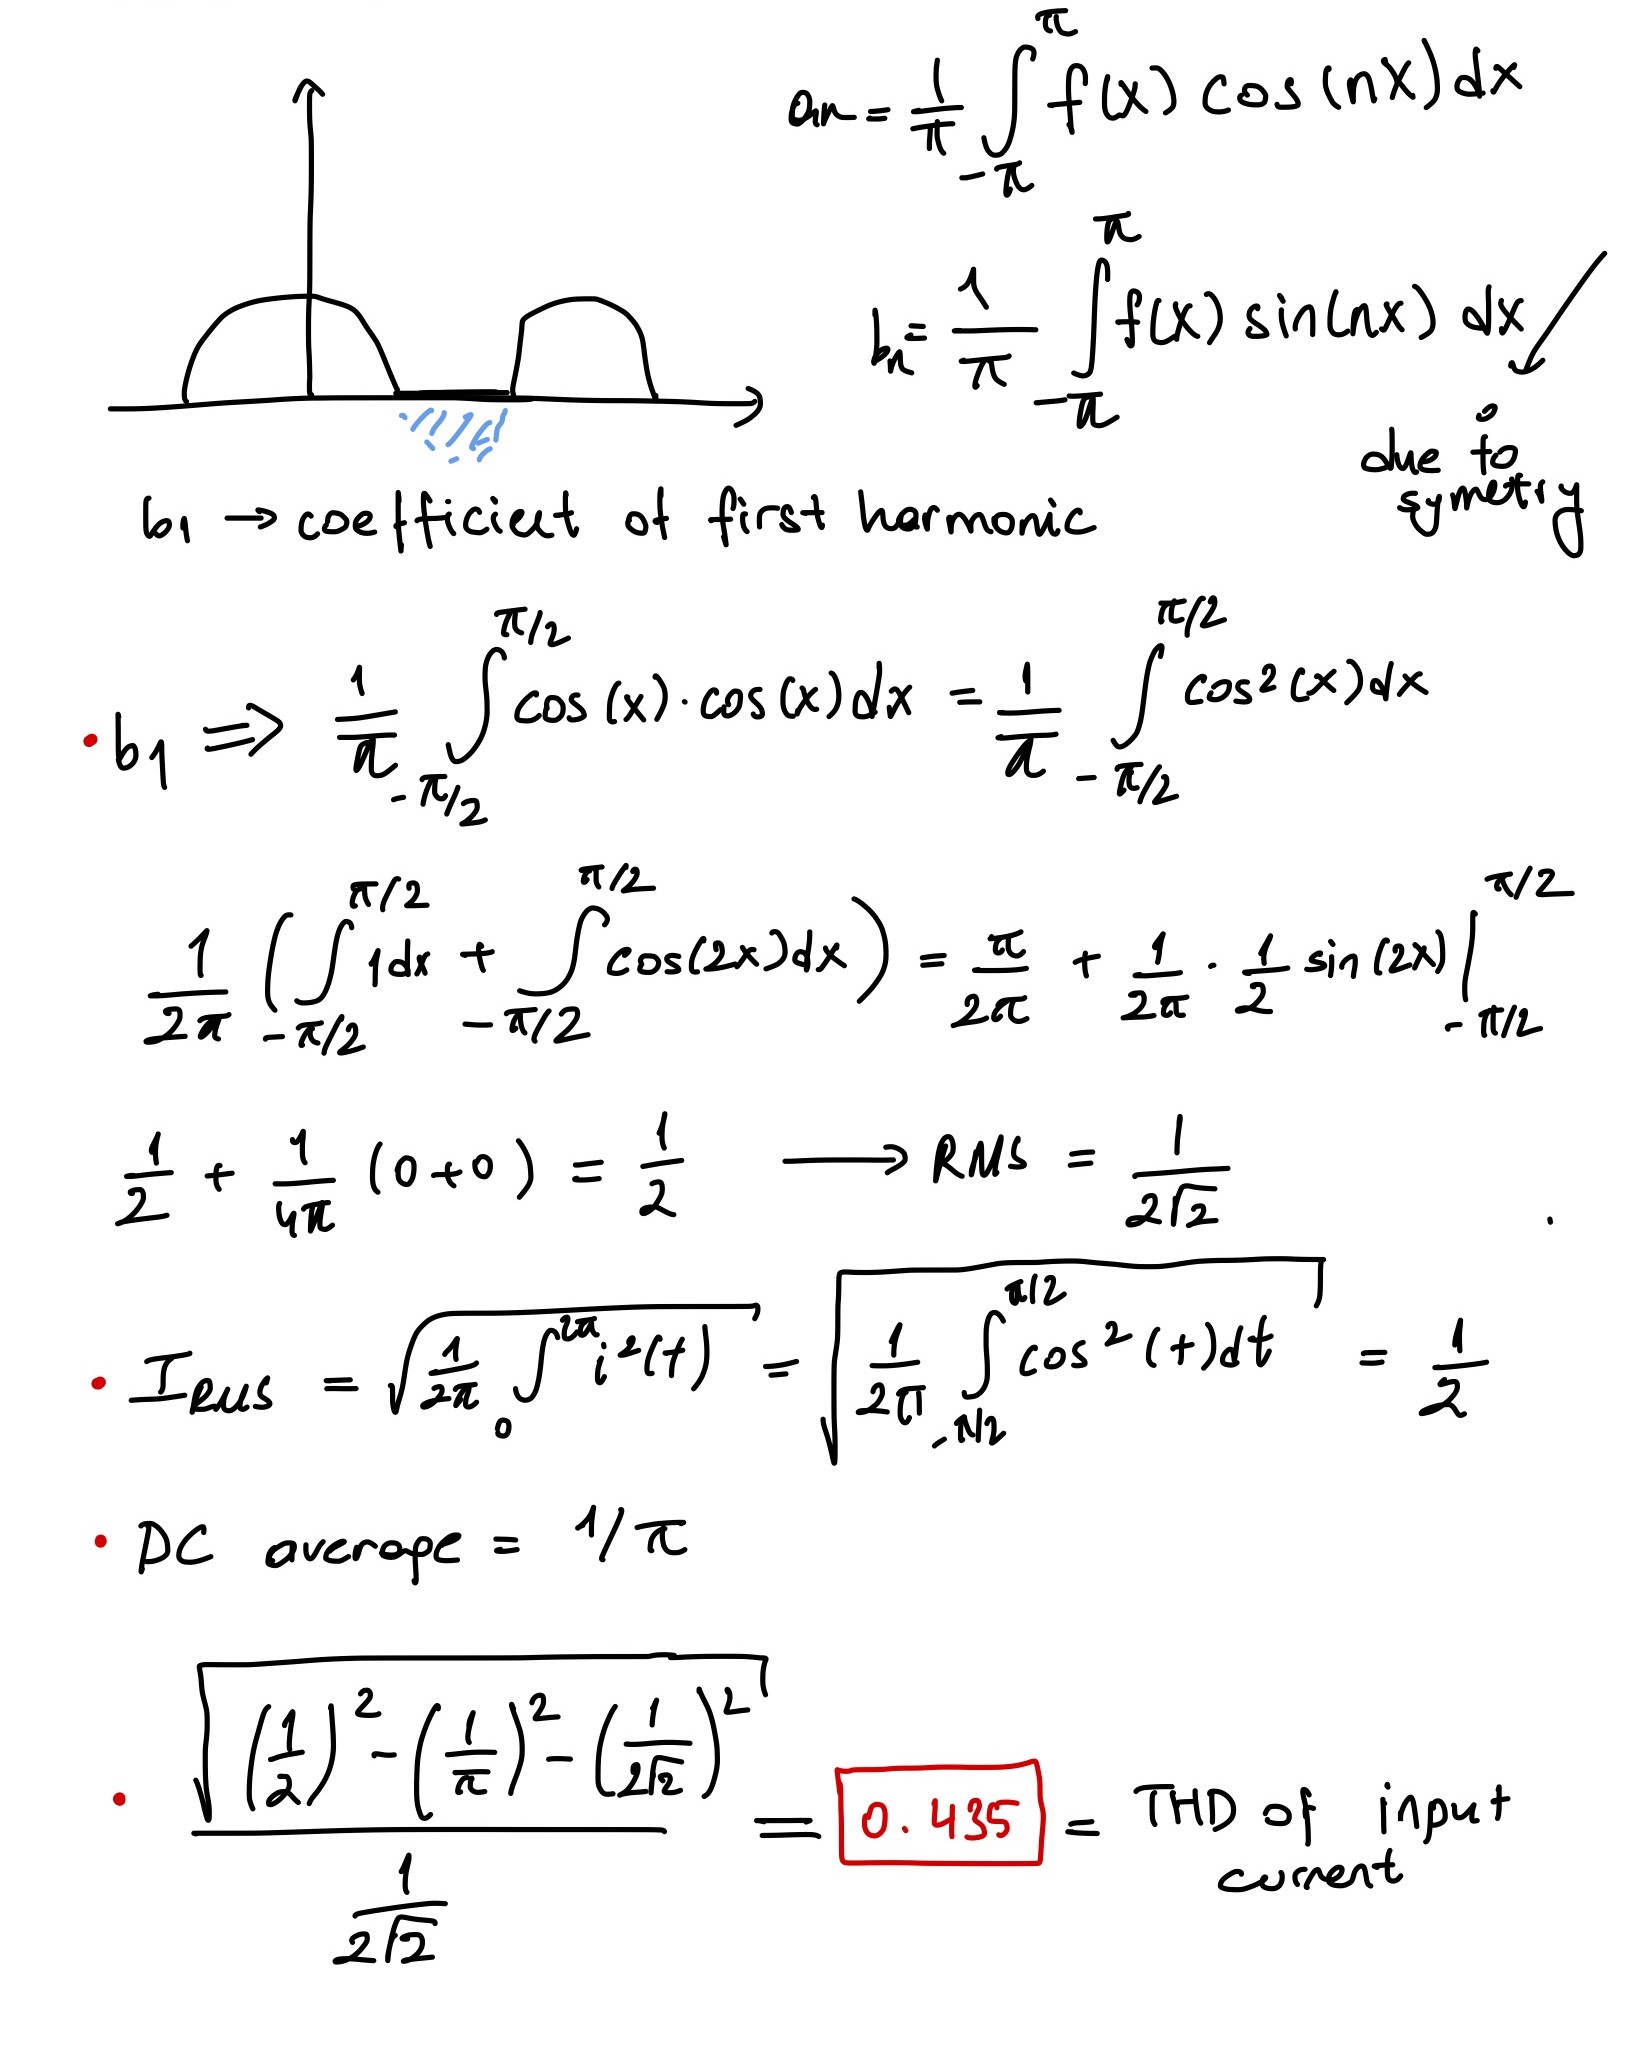 an = 1/π ∫_{-π}^{π} f(x) cos(nx) dx
bn = 1/π ∫_{-π}^{π} f(x) sin(nx) dx
0
due to
symetry
b1 → coefficient of first harmonic
• b1 ⇒ 1/π ∫_{-π/2}^{π/2} cos(x)·cos(x)dx = 1/π ∫_{-π/2}^{π/2} cos²(x)dx
1/2π ( ∫_{-π/2}^{π/2} 1dx + ∫_{-π/2}^{π/2} cos(2x)dx ) = π/2π + 1/2π · 1/2 sin(2x) |_{-π/2}^{π/2}
1/2 + 1/4π (0+0) = 1/2 → RMS = 1/(2√2)
• I_RMS = √( 1/2π ∫_0^{2π} i²(t) ) = √( 1/2π ∫_{-π/2}^{π/2} cos²(t)dt ) = 1/2
• DC average = 1/π
• √( (1/2)² - (1/π)² - (1/(2√2))² ) / (1/(2√2)) = 0.435 = THD of input
current